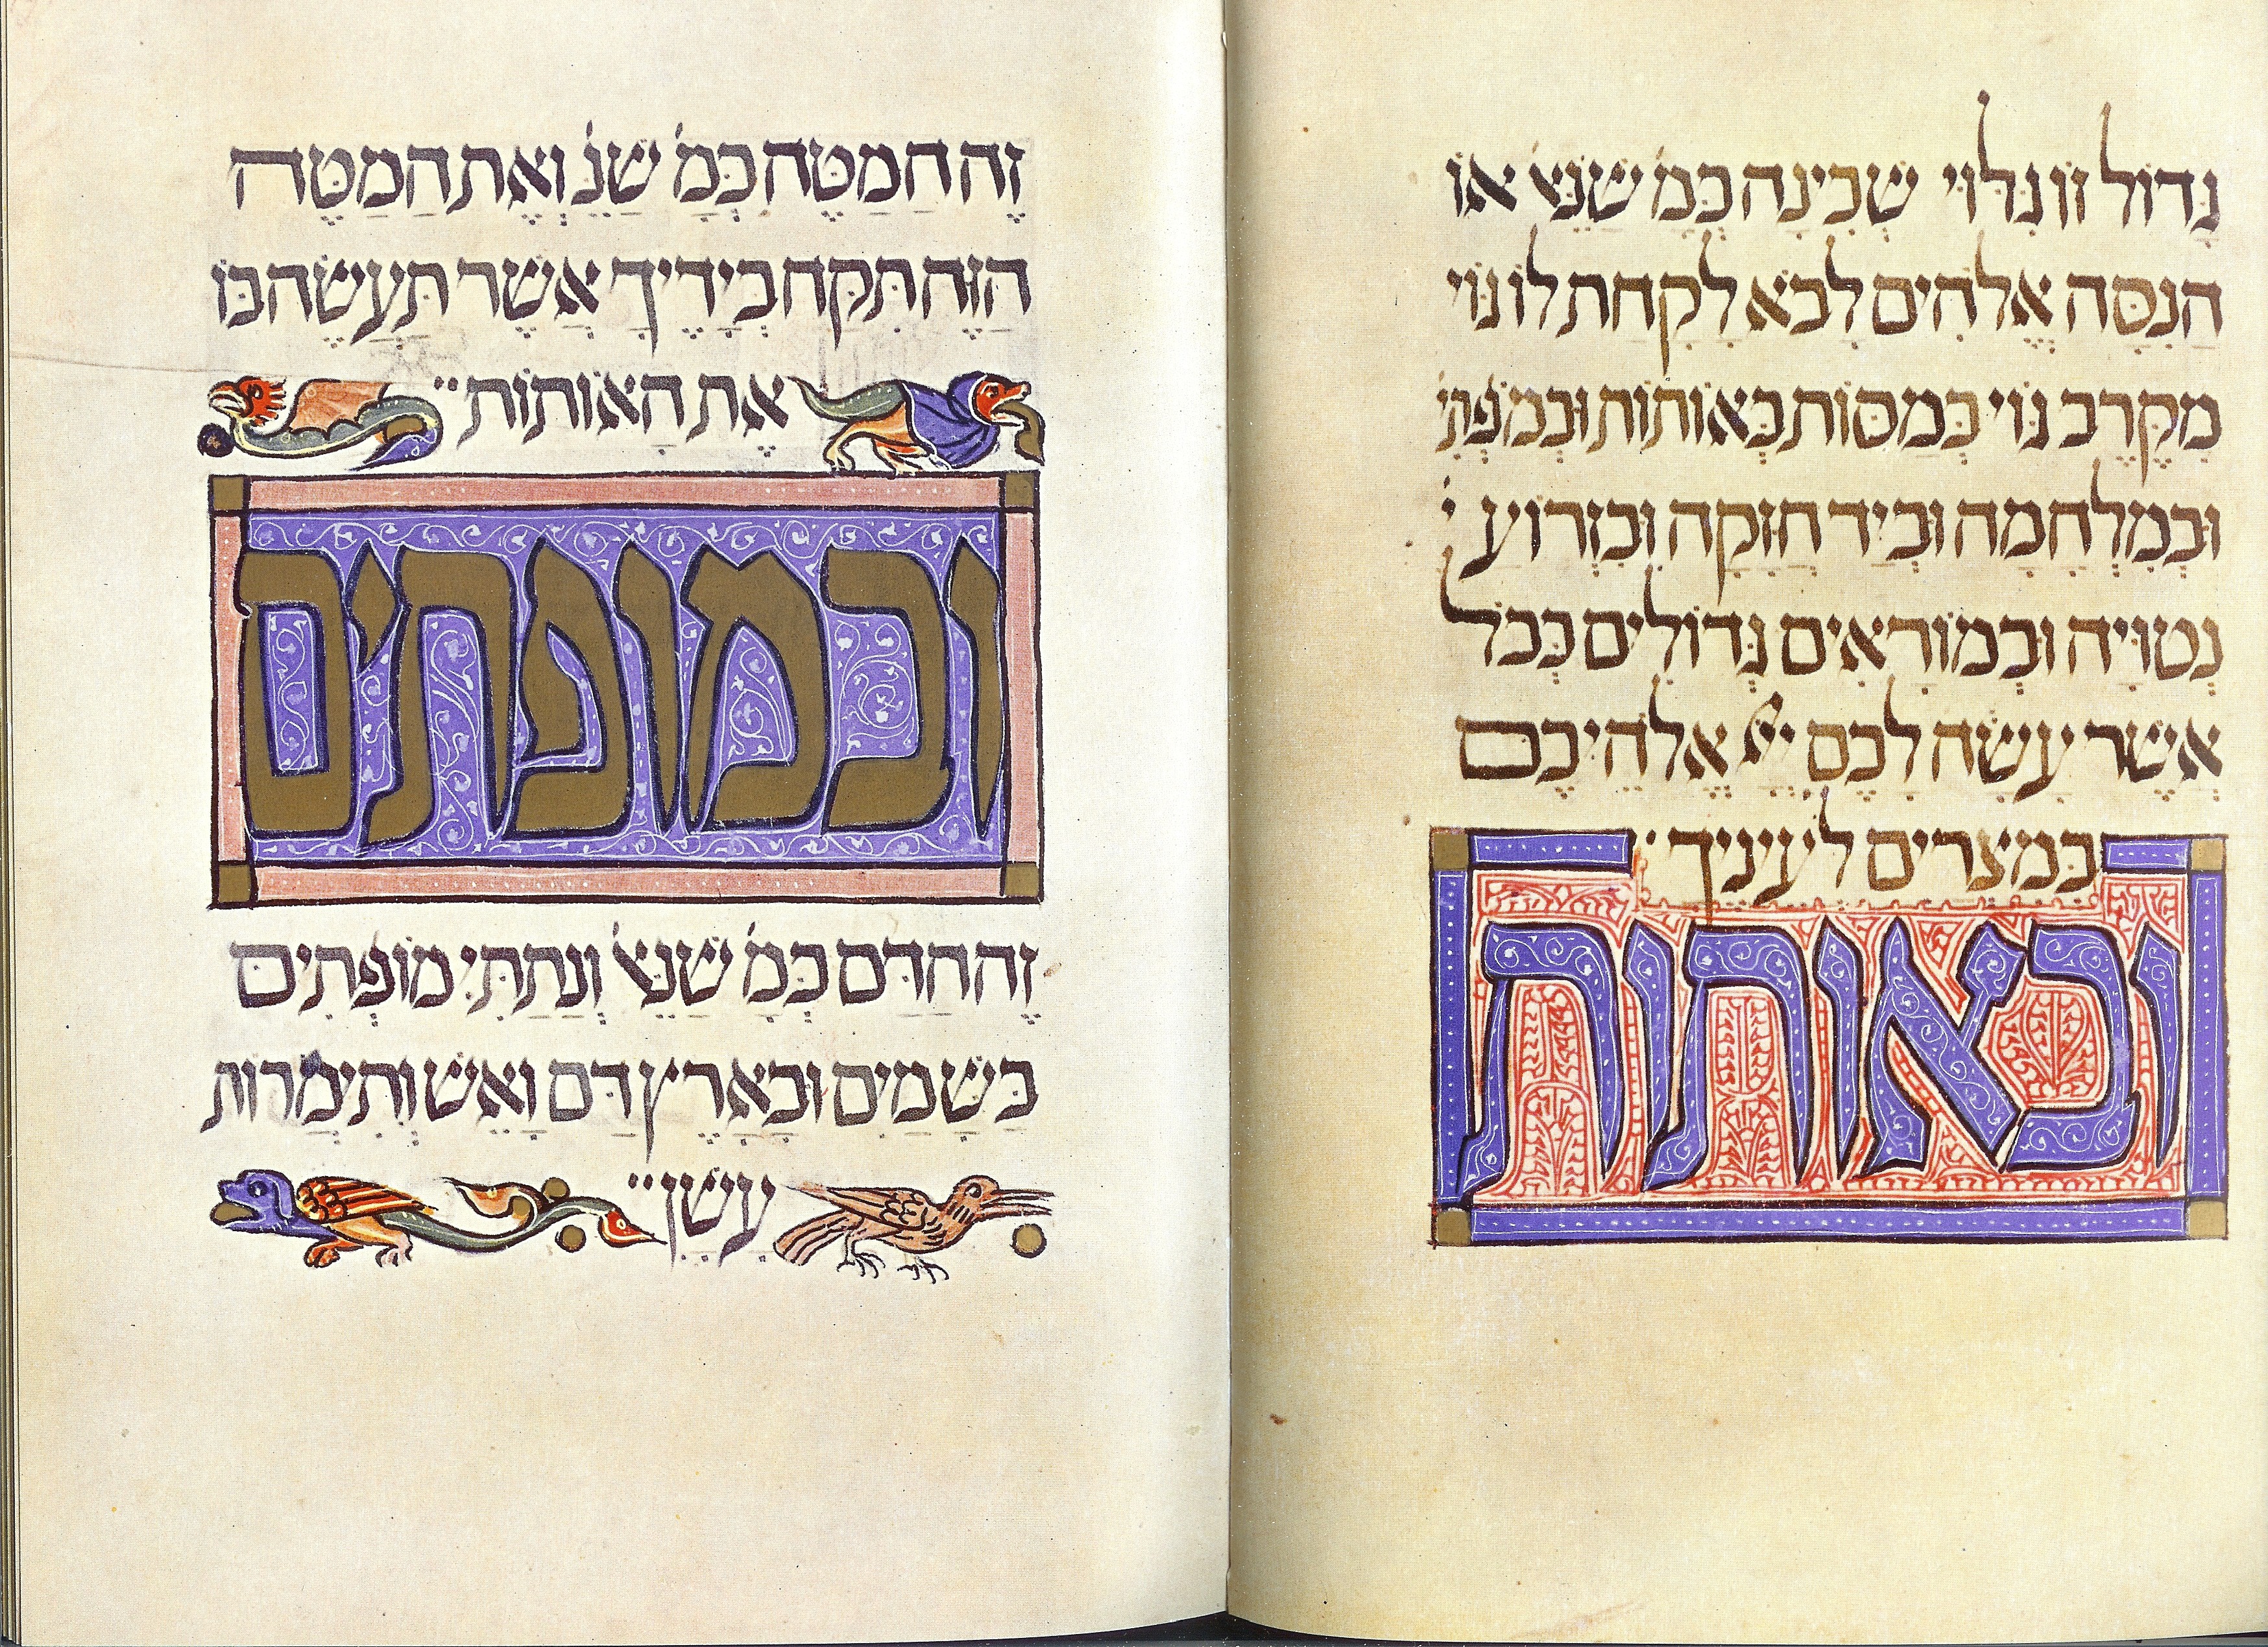 גָדוֹל זוֹ גִלּוּי שְׁכִינָה כְּמָ֗ שֶׁנֵּא֗ אוֹ
הֲנִסָּה אֱלֹהִים לָבֹא לָקַחַת לוֹ גוֹי
מִקֶּרֶב גּוֹי בְּמַסּוֹת בְּאוֹתוֹת וּבְמֹפְתִי֗
וּבְמִלְחָמָה וּבְיָד חֲזָקָה וּבִזְרוֹעַ י֗
נְטוּיָה וּבְמוֹרָאִים גְּדוֹלִים כְּכֹל
אֲשֶׁר עָשָׂה לָכֶם יְיָ אֱלֹהֵיכֶם
בְּמִצְרַיִם לְעֵינֶיךָ
ובאותות
זֶה הַמַּטֶּה כְּמָ֗ שֶׁנֵּ֗ וְאֶת הַמַּטֶּה
הַזֶּה תִּקַּח בְּיָדֶיךָ אֲשֶׁר תַּעֲשֶׂה בּוֹ
אֶת הָאוֹתוֹת
ובמופתים
זֶה הַדָּם כְּמָ֗ שֶׁנֵּא֗ וְנָתַתִּי מוֹפְתִים
בַּשָּׁמַיִם וּבָאָרֶץ דָּם וָאֵשׁ וְתִימֲרוֹת
עָשָׁן